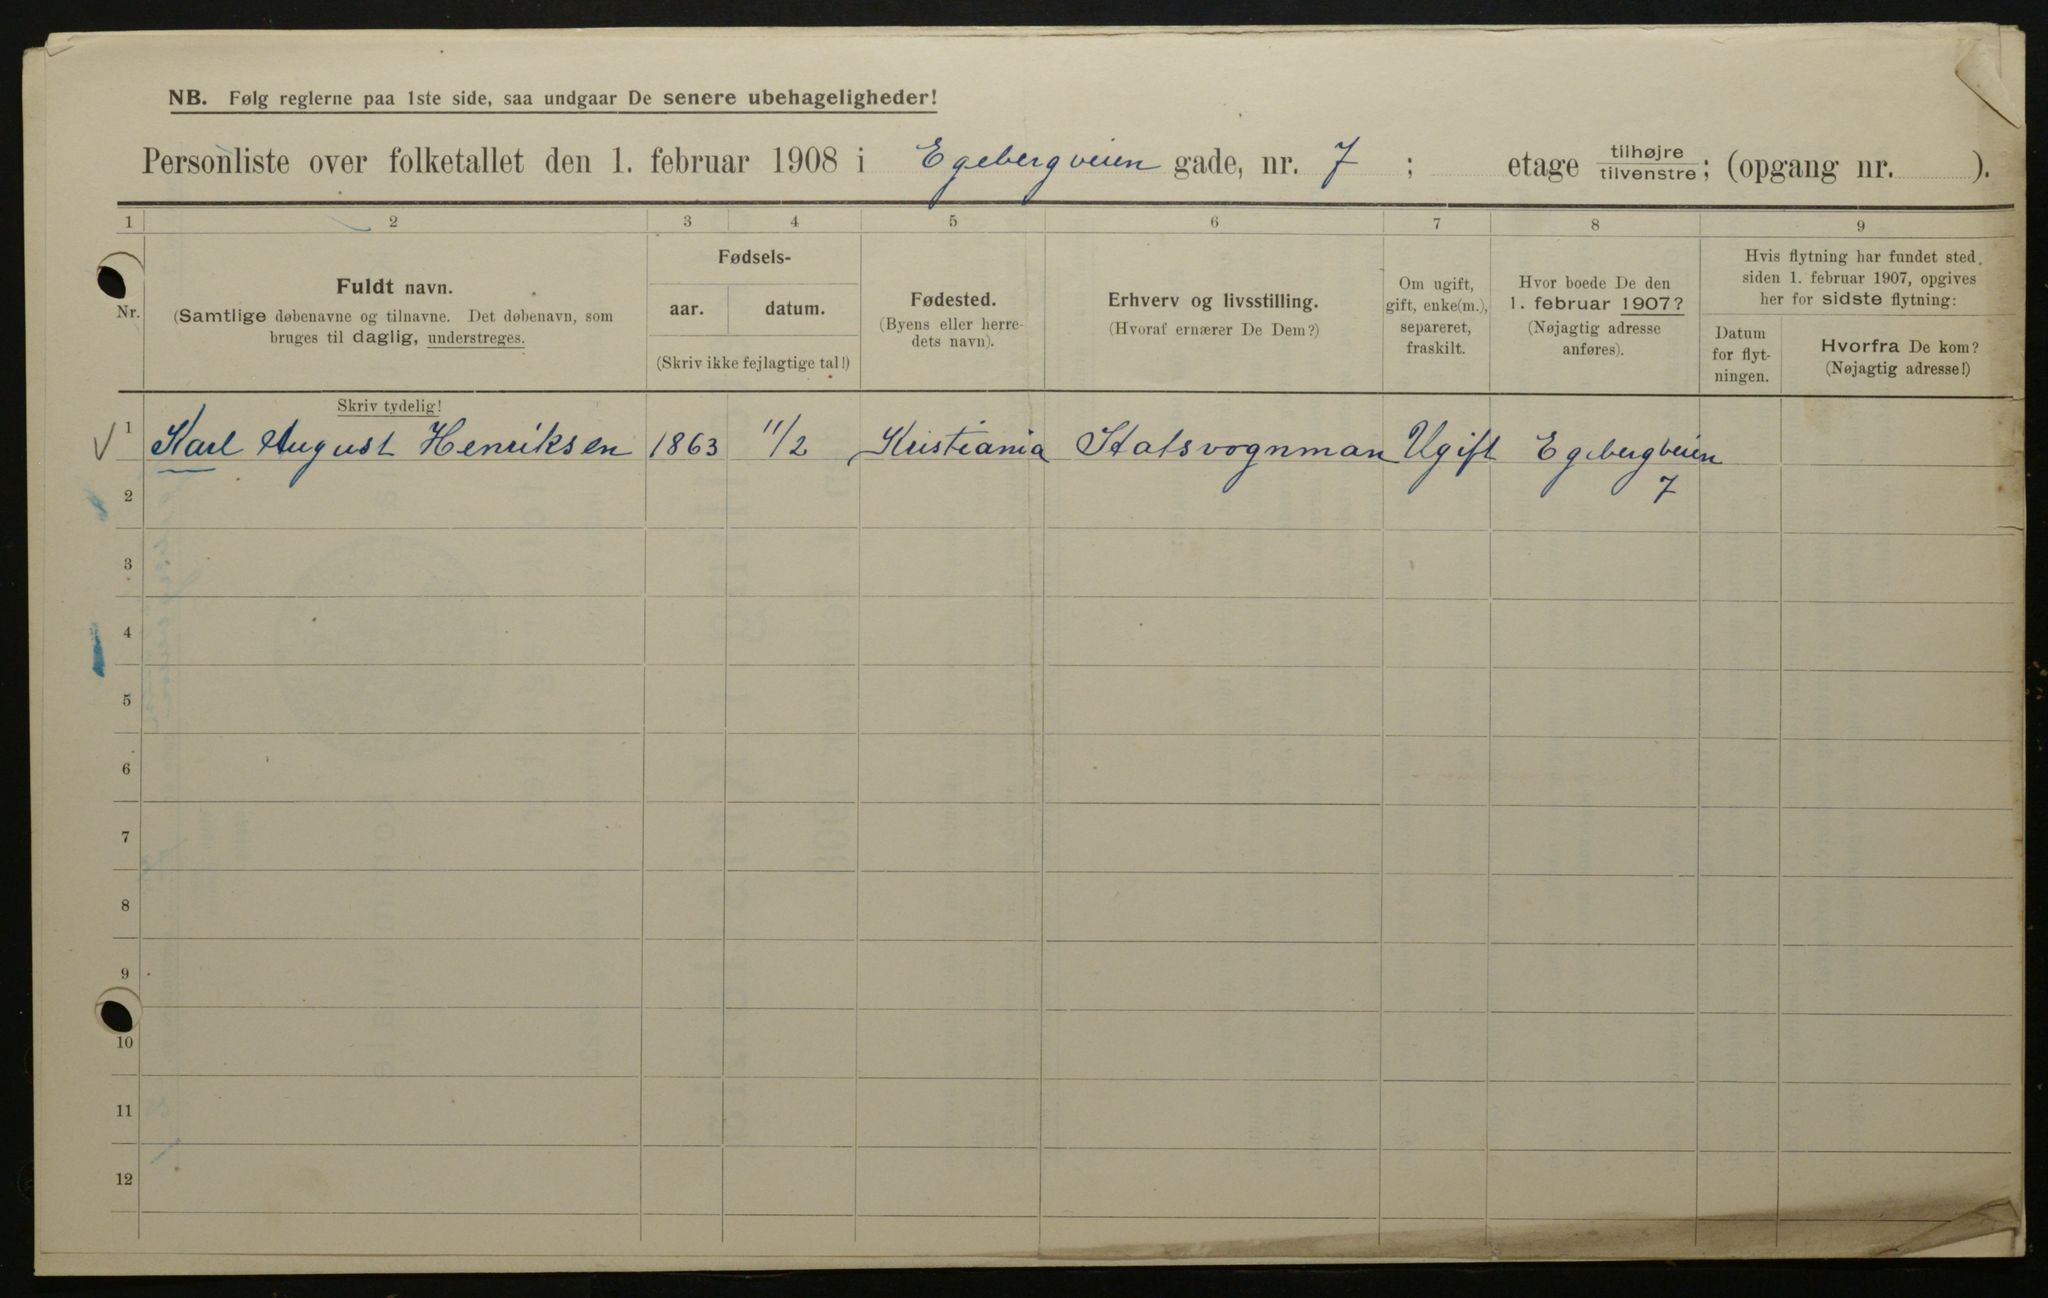 NB. Følg reglerne paa 1ste side, saa undgaar De senere ubehageligheder!
Personliste over folketallet den 1. februar 1908 i Egebergveien gade, nr. 7 ; etage tilhøjre/tilvenstre; (opgang nr. ).
1 2 3 4 5 6 7 8 9
Nr.
Fuldt navn.
(Samtlige døbenavne og tilnavne. Det døbenavn, som
bruges til daglig, understreges.
Skriv tydelig!
Fødsels-
aar. datum.
(Skriv ikke fejlagtige tal!)
Fødested.
(Byens eller herre-
dets navn).
Erhverv og livsstilling.
(Hvoraf ernærer De Dem?)
Om ugift,
gift, enke(m.),
separeret,
fraskilt.
Hvor boede De den
1. februar 1907?
(Nøjagtig adresse
anføres).
Hvis flytning har fundet sted
siden 1. februar 1907, opgives
her for sidste flytning:
Datum
for flyt-
ningen.
Hvorfra De kom?
(Nøjagtig adresse!)
1 Karl August Henriksen 1863 11/2 Kristiania Statsvognman Ugift Egebergveien
7
2
3
4
5
6
7
8
9
10
11
12